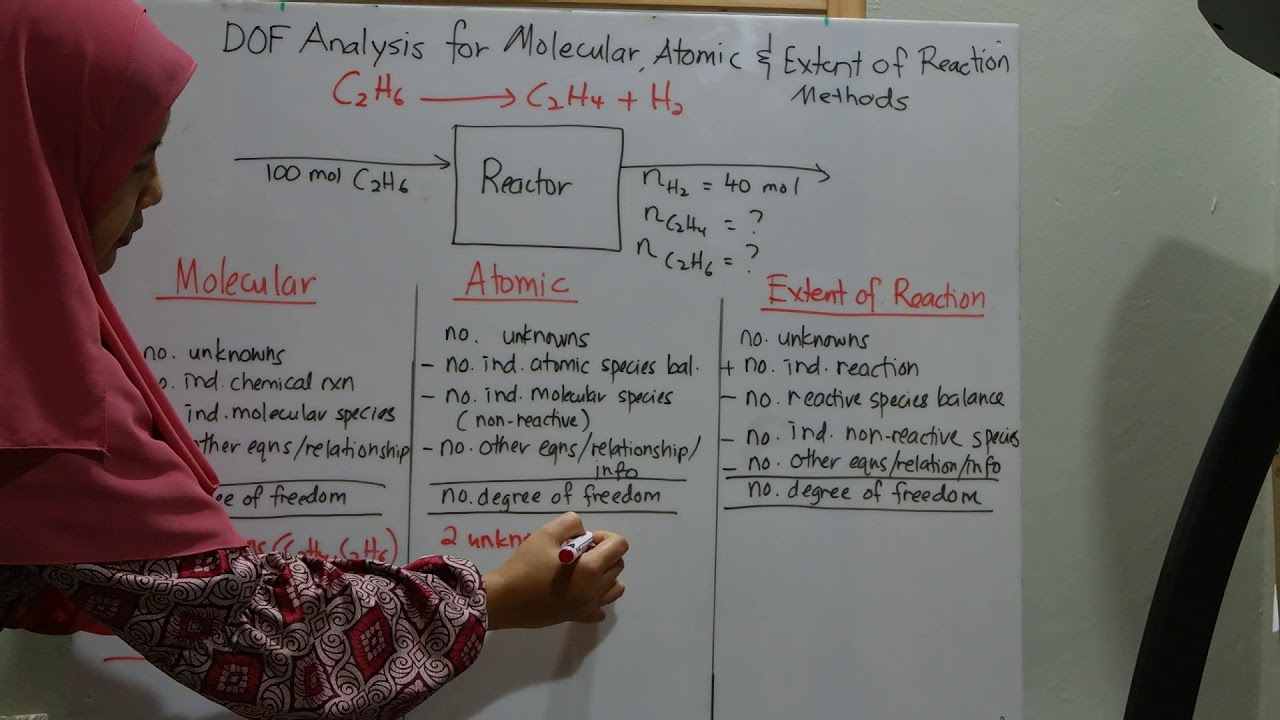 DOF Analysis for Molecular, Atomic & Extent of Reaction
Methods
C2H6 → C2H4 + H2
100 mol C2H6
Reactor
nH2 = 40 mol
nC2H4 = ?
nC2H6 = ?
Molecular
no. unknowns
ind. chemical rxn
ind. molecular species
ther eqns/relationship
ee of freedom
(C2H4, C2H6)
Atomic
no. unknowns
- no. ind. atomic species bal.
- no. ind. molecular species
(non-reactive)
- no. other eqns/relationship/
info
no. degree of freedom
2 unkn
Extent of Reaction
no. unknowns
+ no. ind. reaction
- no. reactive species balance
- no. ind. non-reactive species
- no. other eqns/relation/info
no. degree of freedom